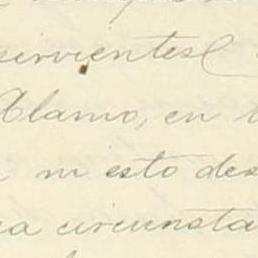 servientes
Alamo, en l
ni esto des
a circunsta